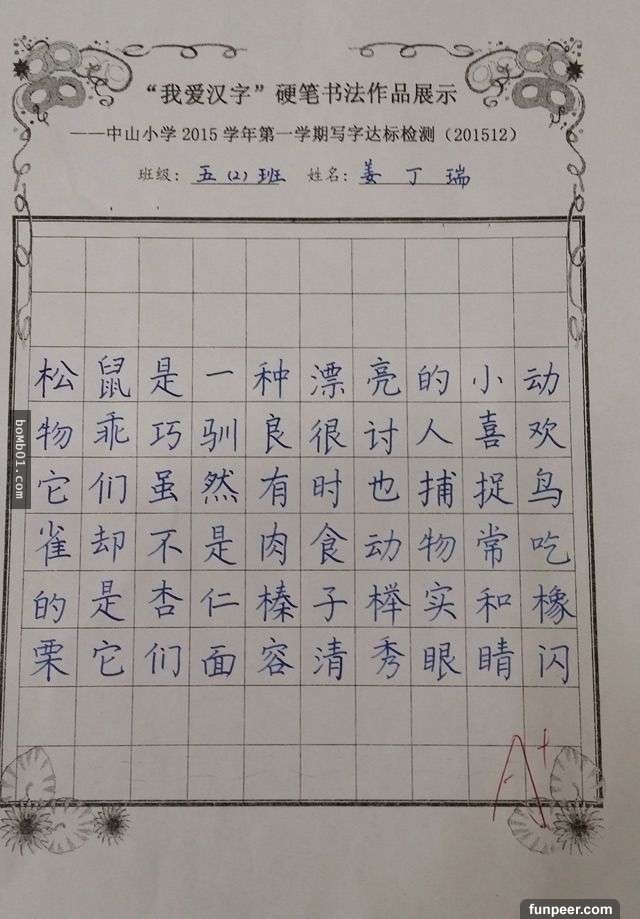 “我爱汉字”硬笔书法作品展示
——中山小学2015学年第一学期写字达标检测（201512）
班级：五（2）班 姓名：姜丁瑞
松鼠是一种漂亮的小动
物乖巧驯良很讨人喜欢
它们虽然有时也捕捉鸟
雀却不是肉食动物常吃
的是杏仁榛子榉实和橡
栗它们面容清秀眼睛闪
A+
boMb01.com
funpeer.com